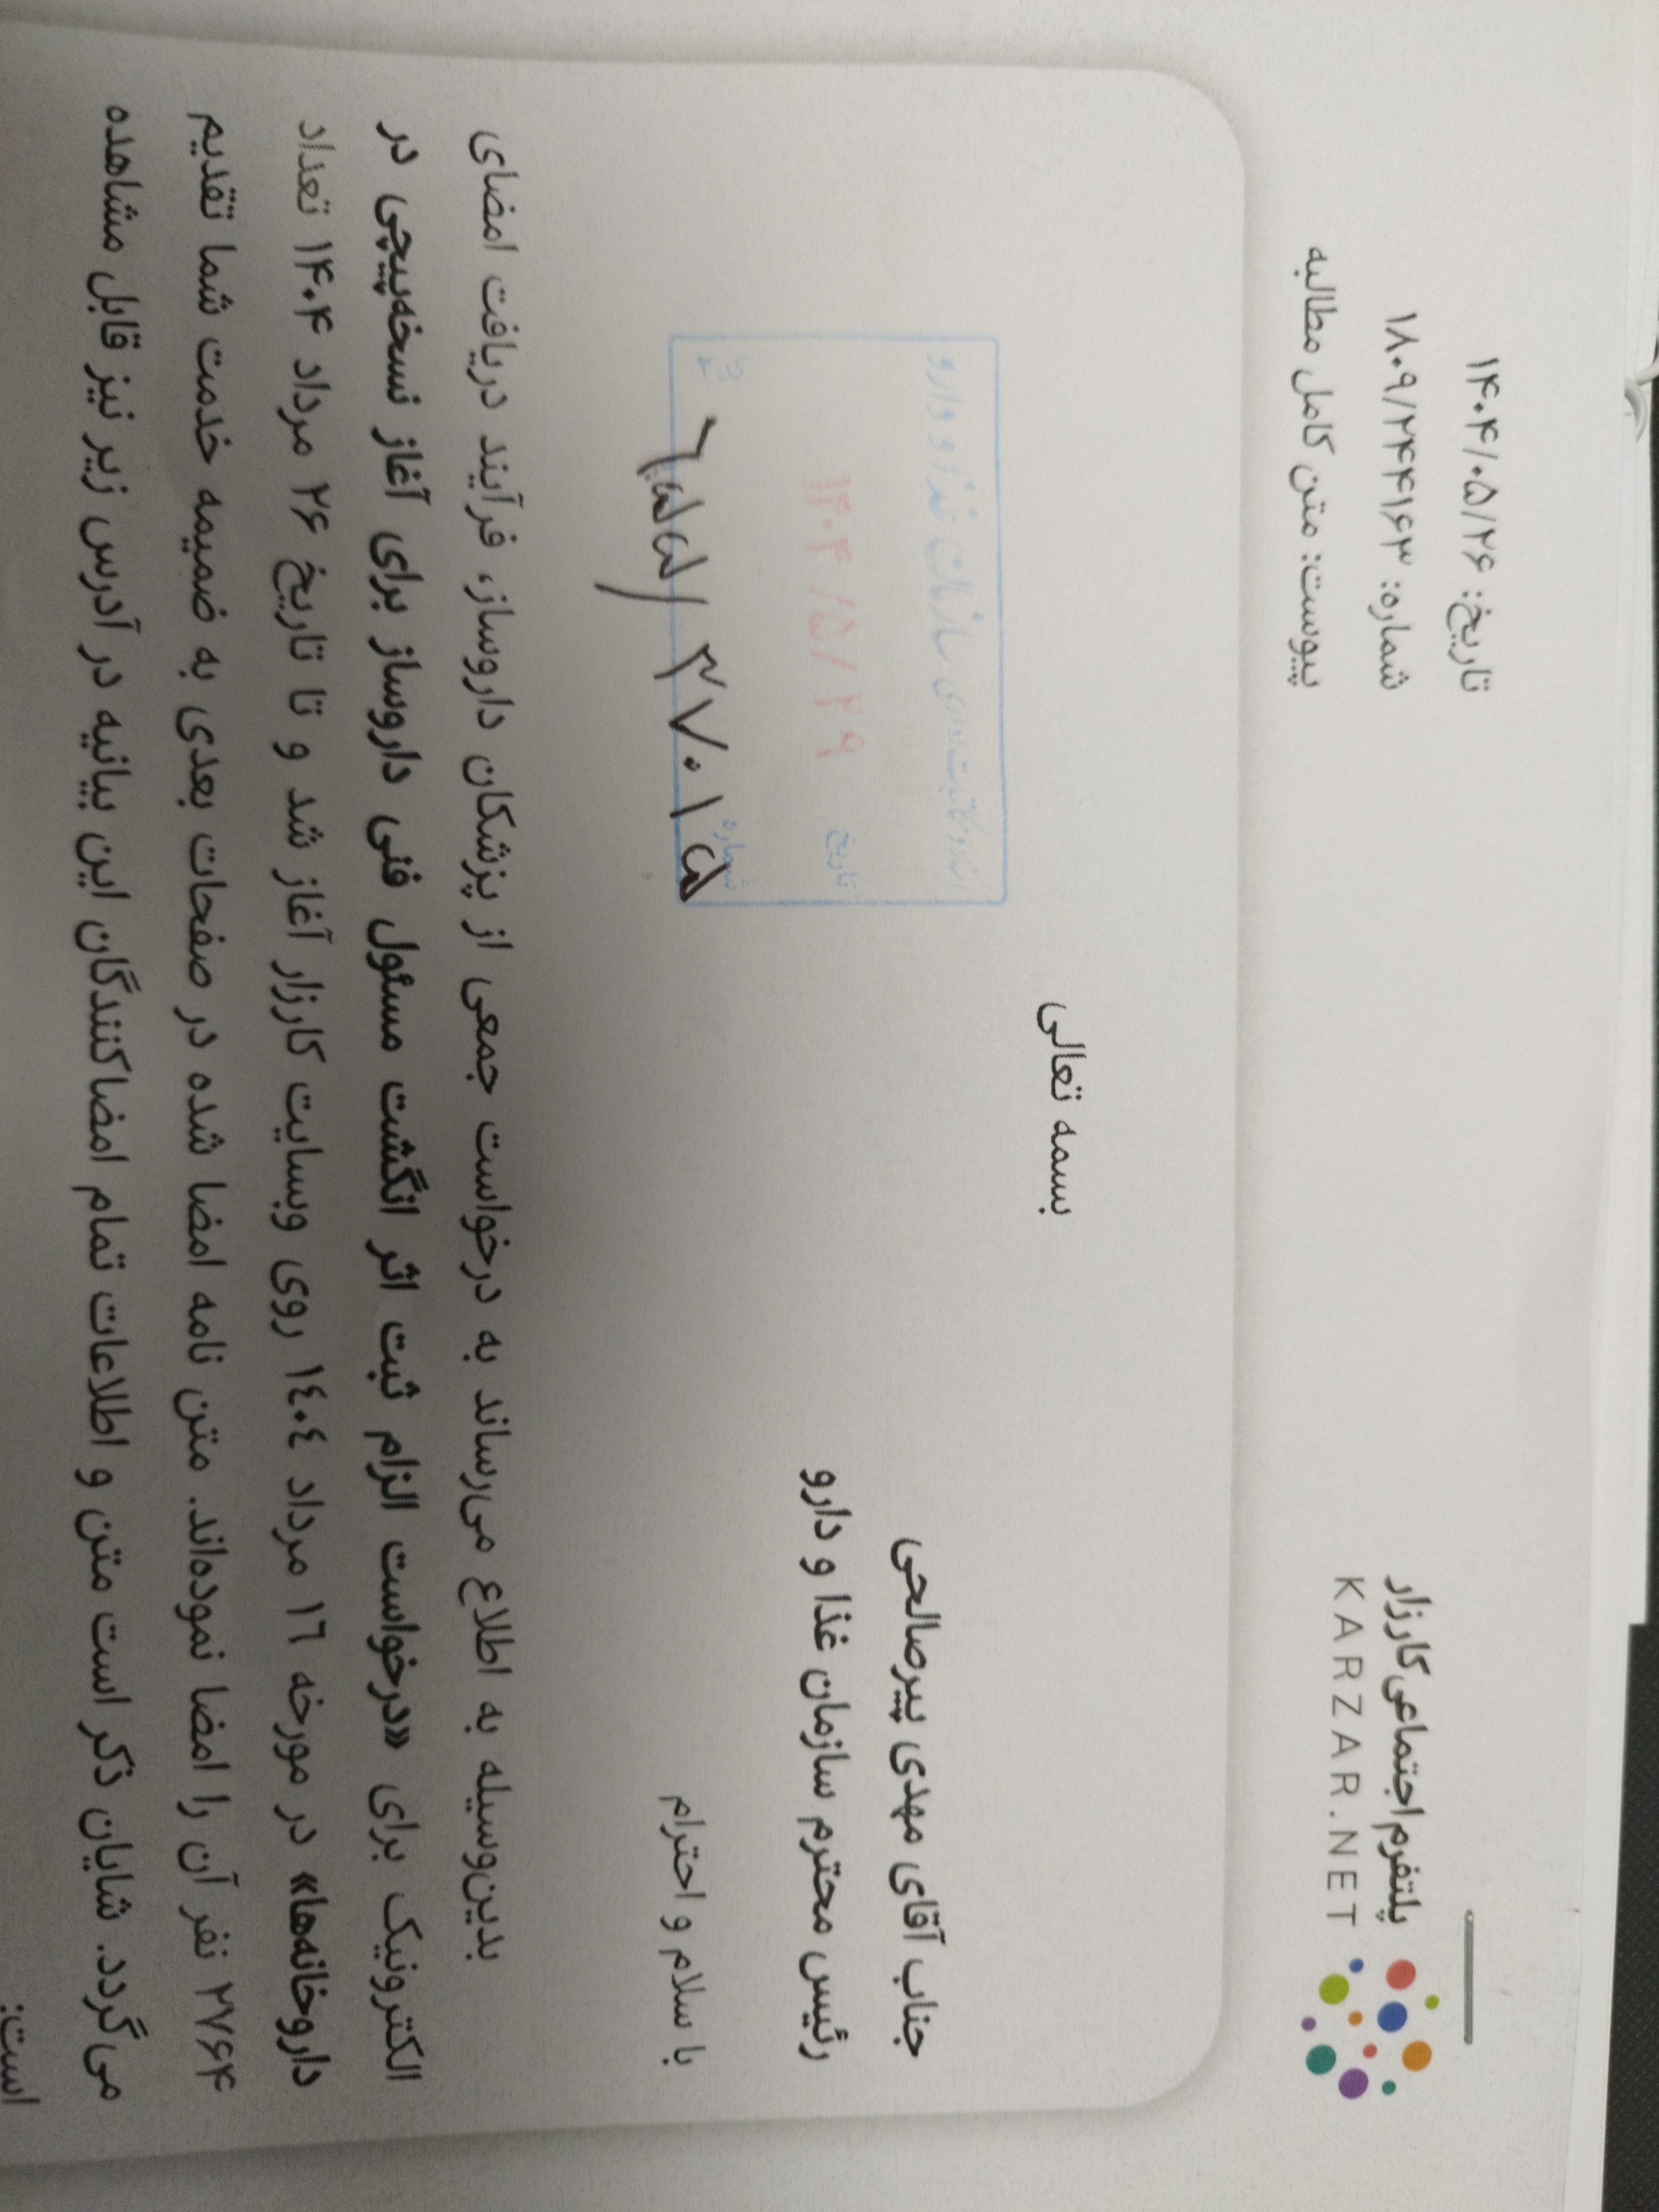 پلتفرم اجتماعی کارزار
KARZAR.NET
تاریخ: ۱۴۰۴/۰۵/۲۶
شماره: ۱۸۰۹/۲۴۴۱۶۳
پیوست: متن کامل مطالبه
بسمه تعالی
جناب آقای مهدی پیرصالحی
رئیس محترم سازمان غذا و دارو
سازمان غذا و دارو
تاریخ
۱۴۰۴/۵/۲۹
شماره
با سلام و احترام
بدین‌وسیله به اطلاع می‌رساند به درخواست جمعی از پزشکان داروساز، فرآیند دریافت امضای
الکترونیک برای «درخواست الزام ثبت اثر انگشت مسئول فنی داروساز برای آغاز نسخه‌پیچی در
داروخانه‌ها» در مورخه ١٦ مرداد ١٤٠٤ روی وبسایت کارزار آغاز شد و تا تاریخ ۲۶ مرداد ۱۴۰۴ تعداد
۲۷۶۴ نفر آن را امضا نموده‌اند. متن نامه امضا شده در صفحات بعدی به ضمیمه خدمت شما تقدیم
می‌گردد. شایان ذکر است متن و اطلاعات تمام امضاکنندگان این بیانیه در آدرس زیر نیز قابل مشاهده
است: